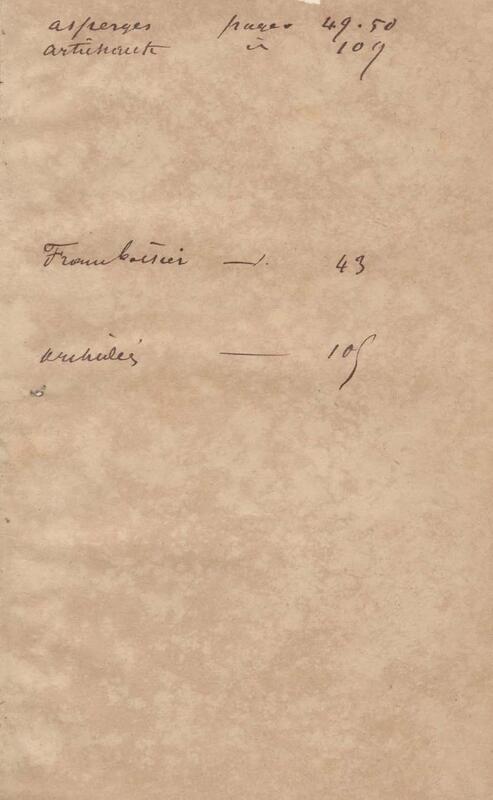 asperges pages 49.50
artichauts id 109
Framboisier — 43
orchidées — 105